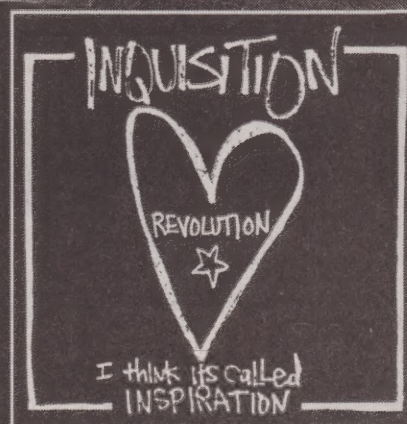 INQUISITION
REVOLUTION
I think its called
INSPIRATION